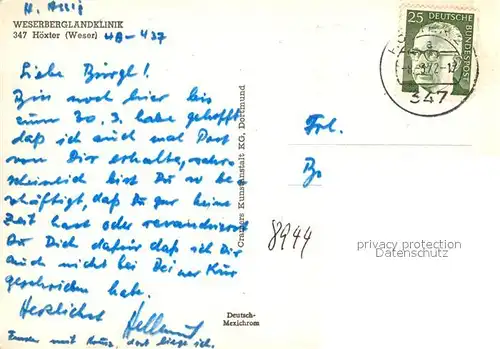 H. Assig
WESERBERGLANDKLINIK
347 Höxter (Weser) HB-437
Liebe Burgl!
Bin noch hier bis
zum 30. 3. habe gehofft
daß ich auch mal Post
von Dir erhalte, wahr-
scheinlich bist Du so be
schäftigt, daß Du gar keine
Zeit hast oder revanchierst
Du Dich dafür daß ich Dir
auch nicht bei Deiner Kur
geschrieben habe.
Herzlichst Hellmut
mit Kreuz, dort liege ich.
Cramers Kunstanstalt KG, Dortmund
Deutsch-
Mexichrom
25
DEUTSCHE
BUNDESPOST
72-12
347
Frl.
8944
privacy protection
DELCAMPE SERVICES